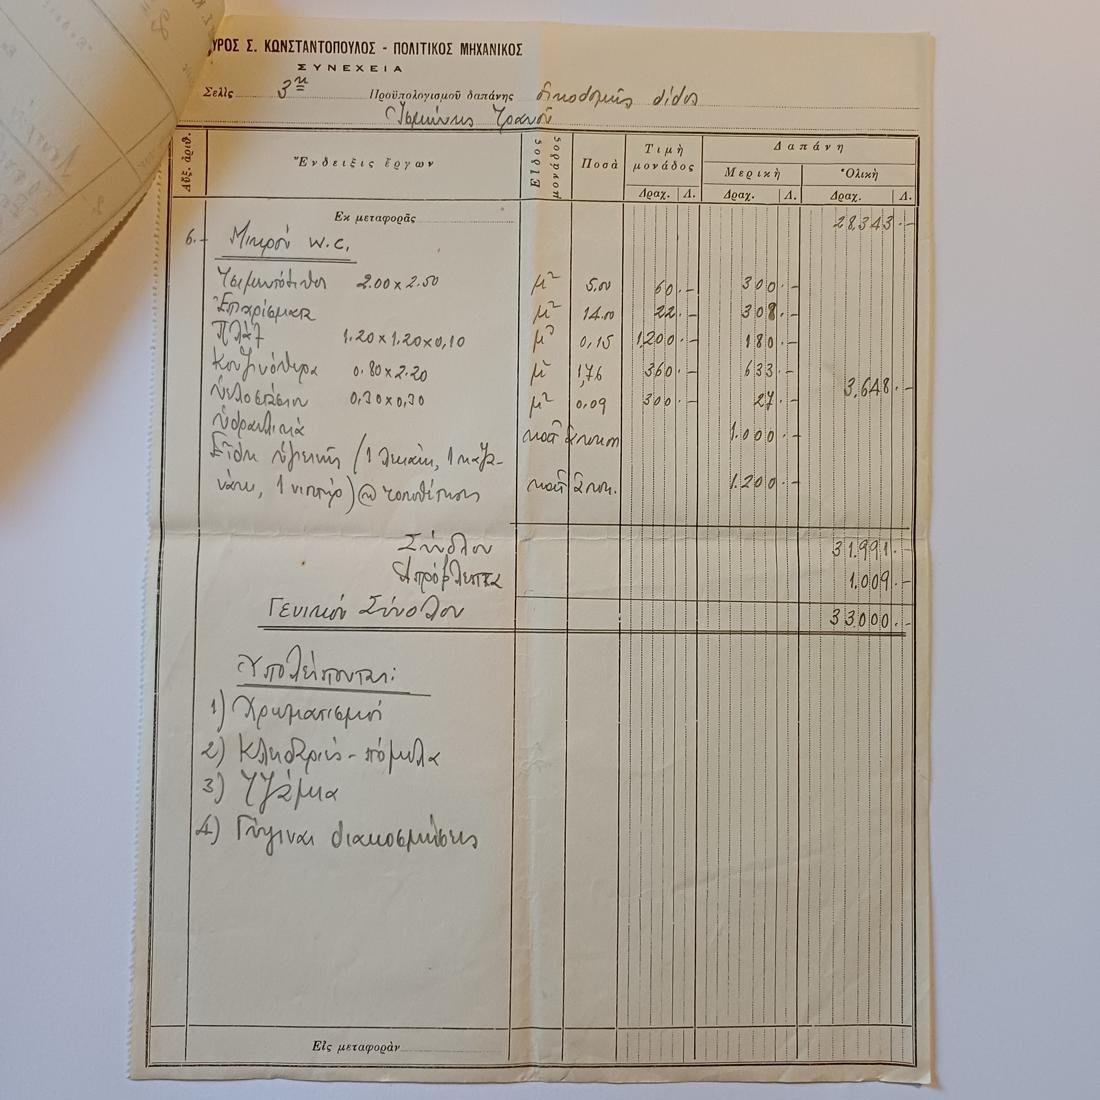 ΥΡΟΣ Σ. ΚΩΝΣΤΑΝΤΟΠΟΥΛΟΣ - ΠΟΛΙΤΙΚΟΣ ΜΗΧΑΝΙΚΟΣ
ΣΥΝΕΧΕΙΑ
Σελὶς 3η Προϋπολογισμοῦ δαπάνης οἰκοδομῆς ὁδὸς
Ἰσμήνης
Αὔξ. ἀριθ. Ἔνδειξις ἔργων Εἶδος μονάδος Ποσὰ Τιμὴ μονάδος Δραχ. Λ. Δαπάνη Μερικὴ Δραχ. Λ. Ὁλικὴ Δραχ. Λ.
Ἐκ μεταφορᾶς 28.343.-
6.- Μικροῦ W.C.
Τσιμεντότιθοι 2.00 x 2.50 μ² 5.00 60.- 300.-
Ἐπιχρίσματα μ² 14.00 22.- 308.-
Πλὰξ 1.20 x 1.20 x 0,10 μ³ 0,15 1200.- 180.-
0.80 x 2.20 μ² 1,76 360.- 633.- 3.648.-
Ὑαλοστάσιον 0,30 x 0,30 μ² 0.09 300.- 27.-
Ὑδραυλικὰ κατ' ἀποκοπ 1.000.-
Εἴδη ὑγιεινῆς (1 λεκάνη, 1 καζα-
νάκι, 1 νιπτήρ) τοποθέτησις κατ' ἀποκ. 1.200.-
Σύνολον 31.991.-
Ἀπρόβλεπτα 1.009.-
Γενικὸν Σύνολον 33000.-
Ὑπολείπονται:
1) Χρωματισμοί
2) Κλειδαριές - πόμολα
3) Τζάμια
4) Γύψιναι διακοσμήσεις
Εἰς μεταφορὰν